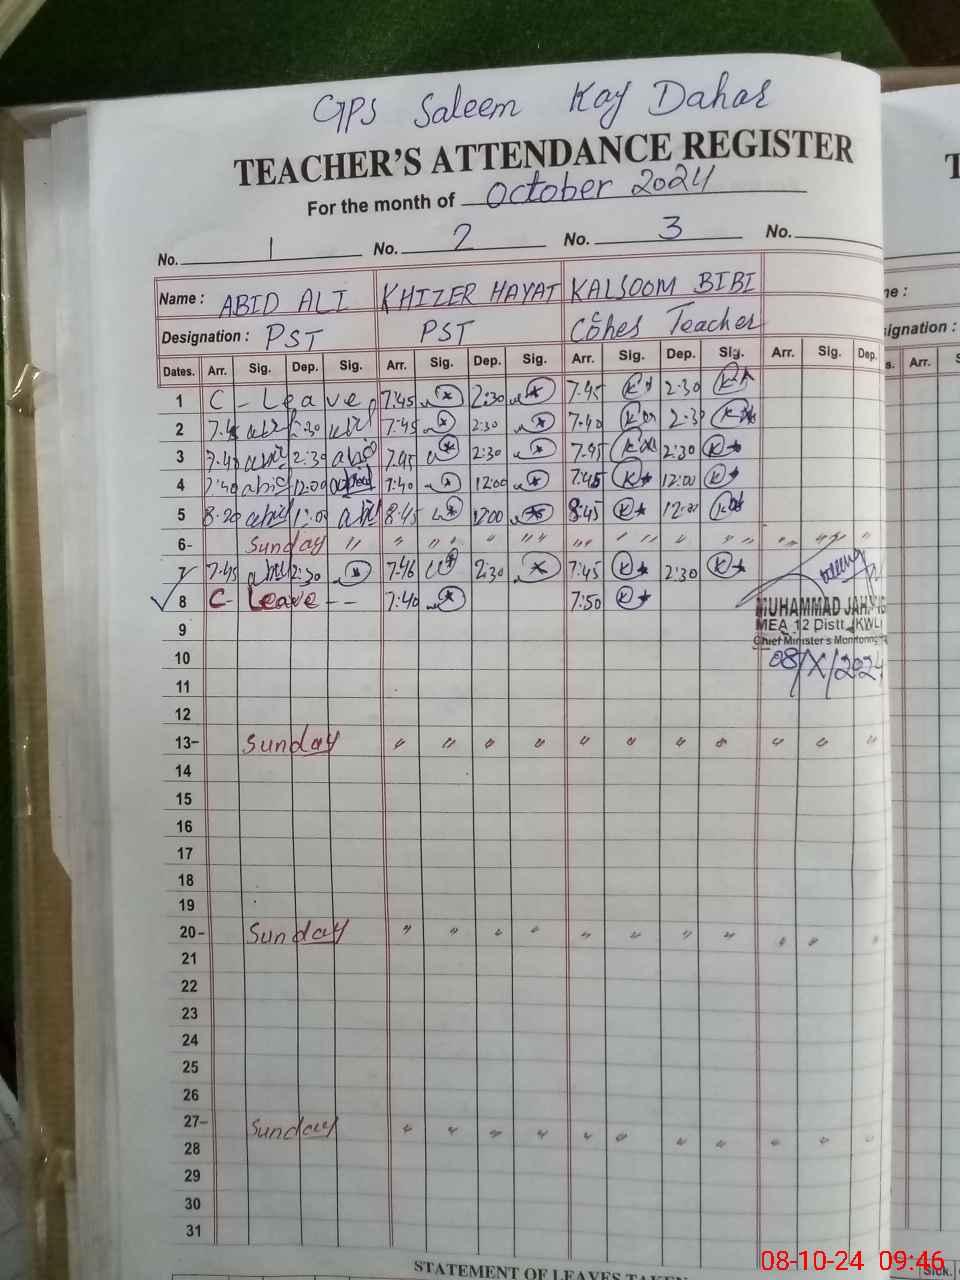 GPS Saleem Kay Dahar
TEACHER'S ATTENDANCE REGISTER T
For the month of October 2024
No. 1 No. 2 No. 3 No.
Name : ABID ALI KHIZER HAYAT KALSOOM BIBI me :
Designation : PST PST Teacher signation :
Dates. Arr. Sig. Dep. Sig. Arr. Sig. Dep. Sig. Arr. Sig. Dep. Sig. Arr. Sig. Dep. s. Arr. S
1 C-Leave 7:45 2:30 7:45 2:30
2 7:45 2:30 7:40 2:30
3 7:40 abid 2:30 abid 7:45 2:30 7:45 2:30
4 7:40 abid 12:00 7:40 12:00 7:45 12:00
5 8:20 abid 12:00 abid 8:45 1200 8:45 12:00
6- Sunday " " " " " " " " " " " " "
7 7:45 2:30 7:46 2:30 7:45 2:30
8 C- Leave -- 7:40 7:50
MUHAMMAD JAHANG
MEA 12 Distt. (KWL)
Chief Minister's Monitoring
08/X/2024
9
10
11
12
13- Sunday " " " " " " " " " " "
14
15
16
17
18
19
20- Sunday " " " " " " " " " " "
21
22
23
24
25
26
27- Sunday " " " " " " " " " " "
28
29
30
31
STATEMENT OF LEAVES TAKEN Sick.
08-10-24 09:46